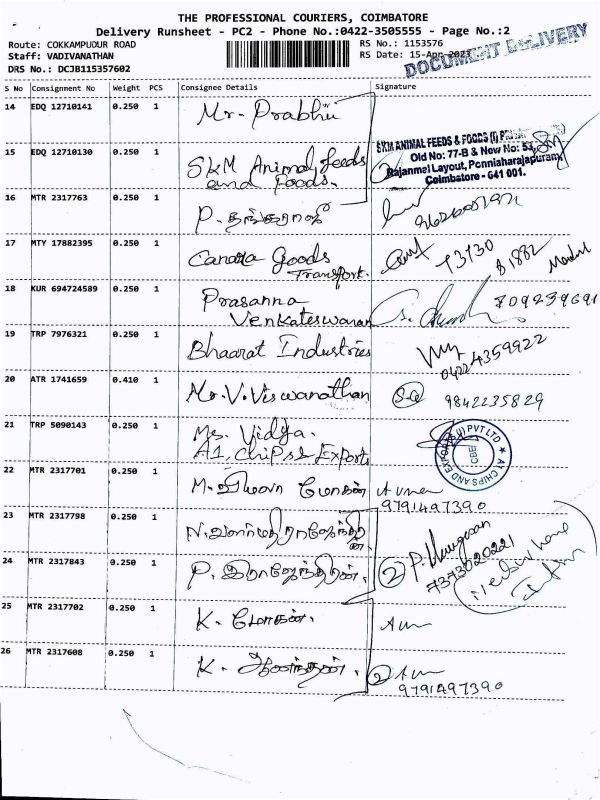 THE PROFESSIONAL COURIERS, COIMBATORE
Delivery Runsheet - PC2 - Phone No.:0422-3505555 - Page No.:2
Route: COKKAMPUDUR ROAD
Staff: VADIVANATHAN
DRS No.: DCJB1153576O2
RS No.: 1153576
RS Date: 15-Apr-2023
DOCUMENT DELIVERY
S No Consignment No Weight PCS Consignee Details Signature
14 EDQ 12710141 0.250 1 Mr. Prabhu
15 EDQ 12710130 0.250 1 SKM Animal feeds
and foods.
SKM ANIMAL FEEDS & FOODS (I)
Old No: 77-B & New No: 53,
Rajanmel Layout, Ponniaharajapuram,
Coimbatore - 641 001.
16 MTR 2317763 0.250 1 P. தங்கராஜ்
17 MTY 17882395 0.250 1 Canara Goods
Transport.
18 KUR 694724589 0.250 1 Prasanna
Venkateswaran
19 TRP 7976321 0.250 1 Bhaarat Industries
04224359922
20 ATR 1741659 0.410 1 Mr. V. Viswanathan 9842235829
21 TRP 5090143 0.250 1 Ms. Vidya.
A1, Chips & Exports
22 MTR 2317701 0.250 1 M. மோகன்
9791497390
23 MTR 2317798 0.250 1
24 MTR 2317843 0.250 1 P. இராஜேந்திரன். 2
7373020221
25 MTR 2317702 0.250 1 K. மோகன்.
26 MTR 2317608 0.250 1 K. ஆனந்தன். 2
9791497390